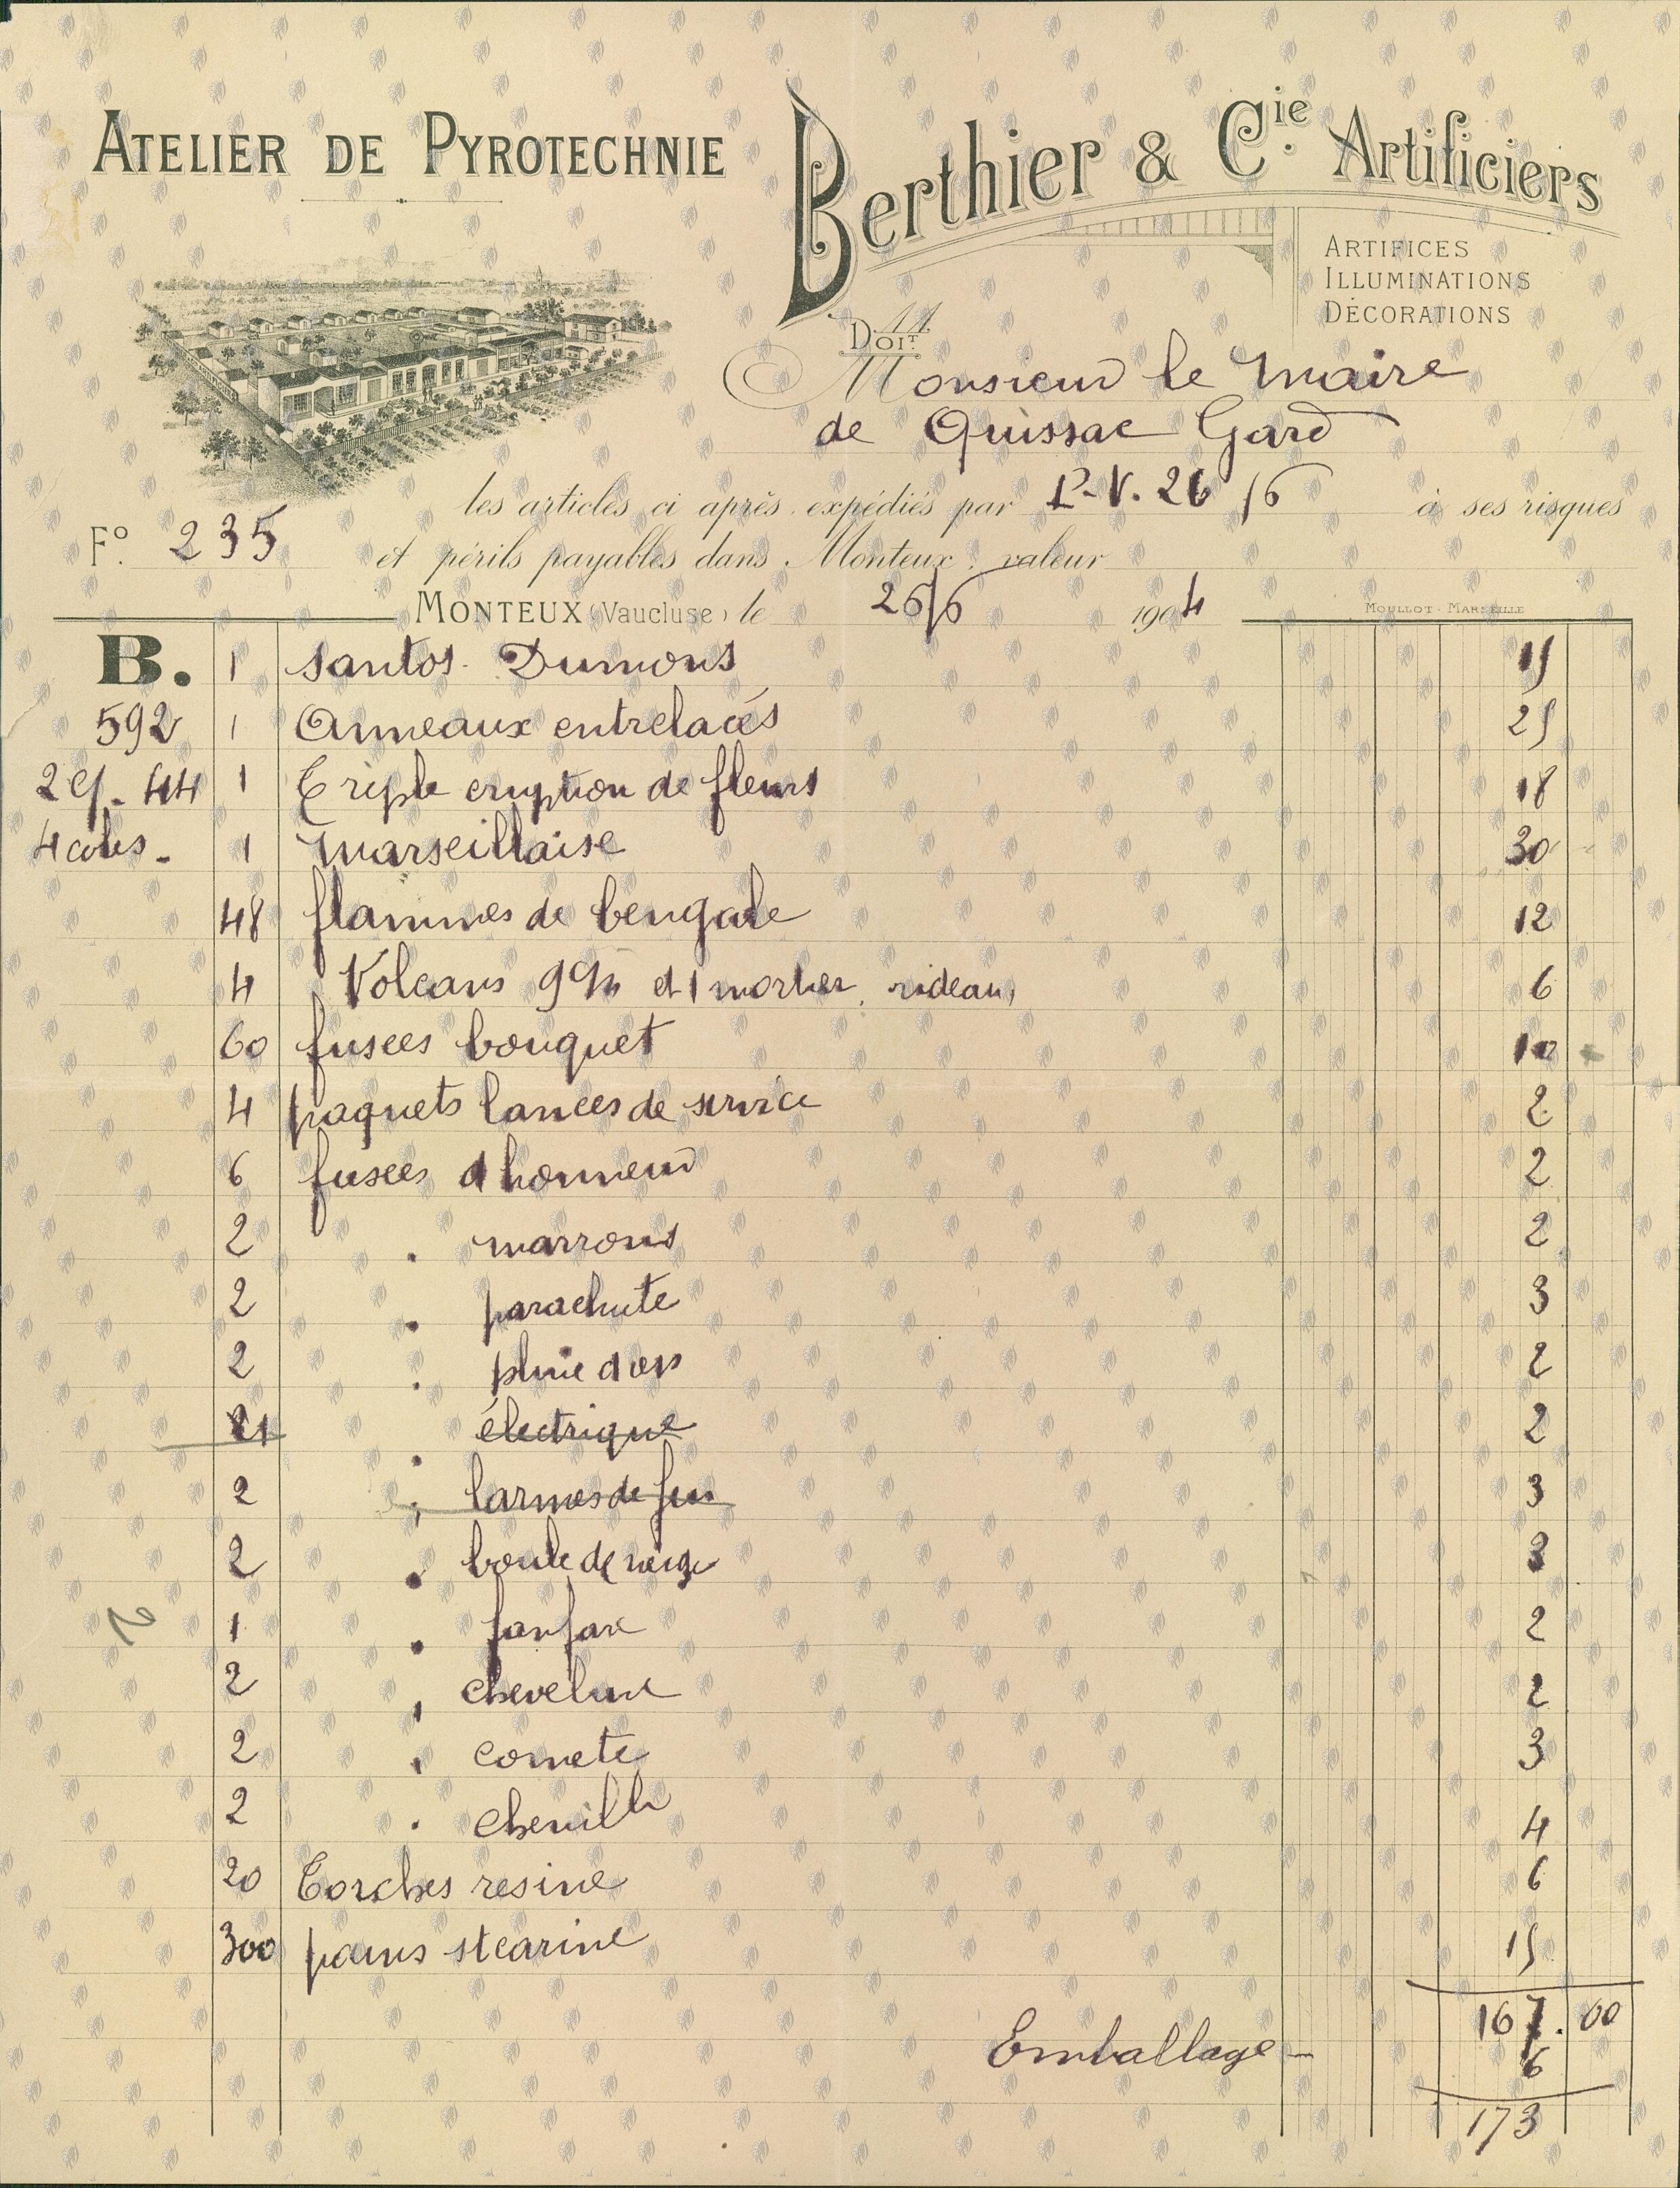 ATELIER DE PYROTECHNIE
Berthier & Cie. Artificiers
ARTIFICES
ILLUMINATIONS
DÉCORATIONS
DOIT
Monsieur le Maire
de Quissac Gard
les articles ci après expédiés par P.V. 26/6 à ses risques
F° 235 et périls payables dans Monteux: valeur
MONTEUX (Vaucluse) le 26/6 1904
MOULLOT - MARSEILLE
B. 1 Santos. Dumons 15
592 1 Anneaux entrelacés 25
1 Triple eruption de fleurs 18
4 colis - 1 Marseillaise 30
48 flammes de bengale 12
4 Volcans et 1 mortier rideau 6
60 fusees bouquet 10
4 paquets lances de service 2
6 fusees d honneur 2
2 . marrons 2
2 . parachute 3
2 . pluie d or 2
. électrique 2
2 . larmes de feu 3
2 . boule de neige 3
1 . fanfare 2
2
2 . chevelure 2
2 . comete 3
2 . chenille 4
20 Torches resine 6
300 pains stearine 15
167.00
Emballage - 6
173